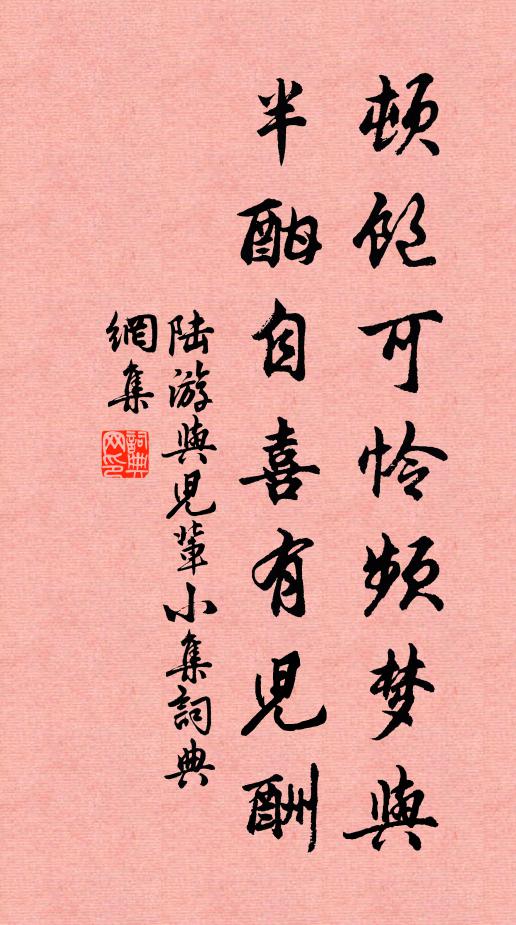 顿饱可怜频梦与
半酣自喜有儿酬
陆游与儿辈小集词典
網集
詞典网印